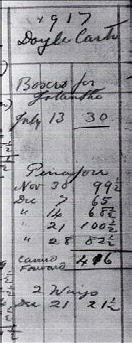 1917
Doyle Carte
Boxers for
Iolanthe
July 13 30
Pinafore
Nov 30 99½
Dec 7 65
" 14 68½
" 21 100½
" 28 82½
Carried
Forward 416
2 Ways
Dec 21 21½